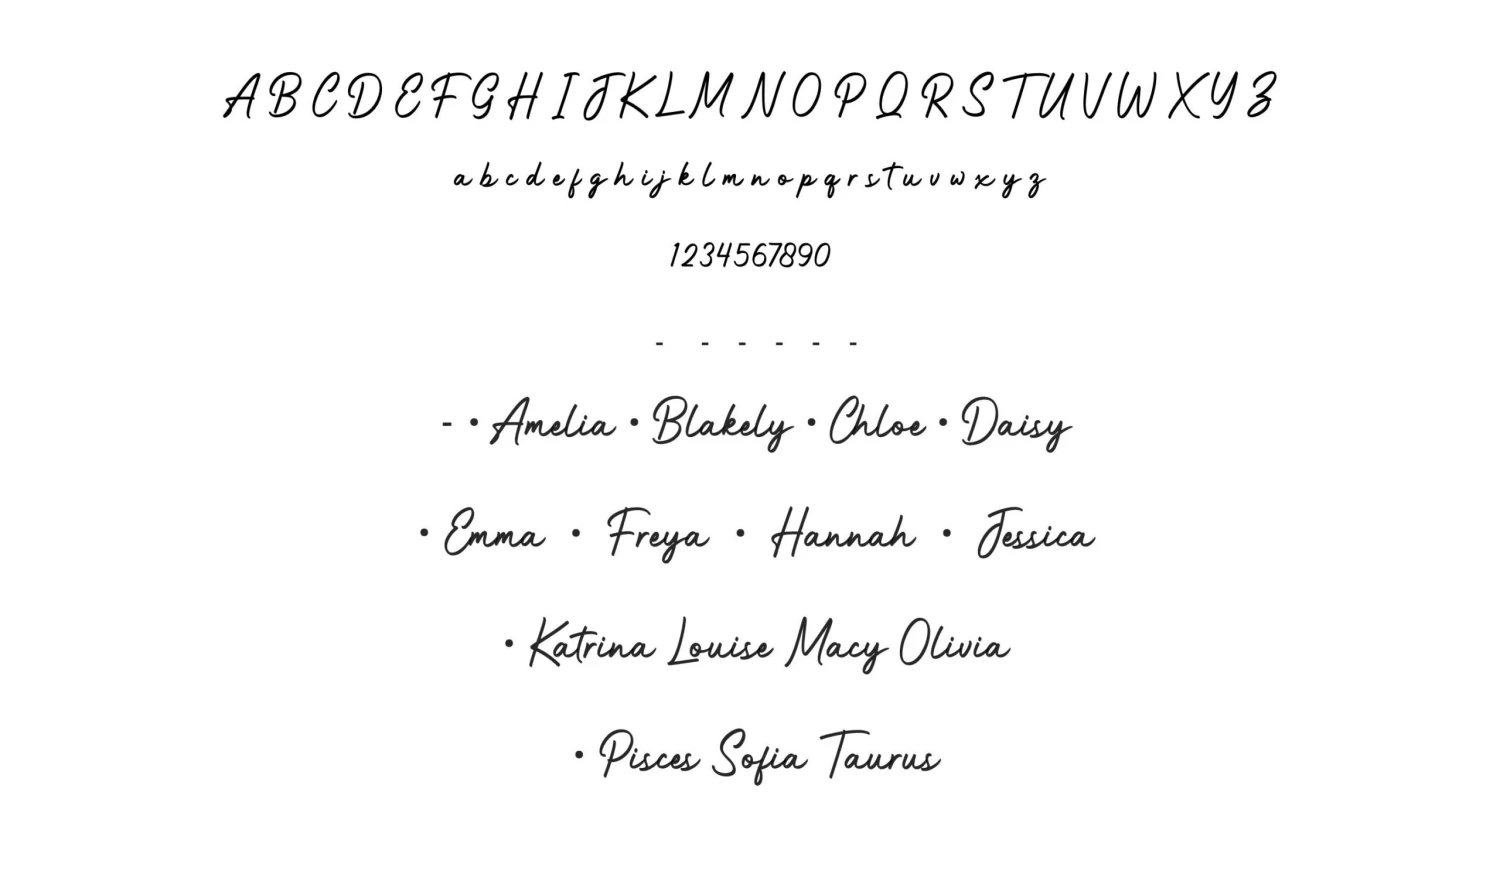 A B C D E F G H I J K L M N O P Q R S T U V W X Y Z
a b c d e f g h i j k l m n o p q r s t u v w x y z
1234567890
- - - - - -
- • Amelia • Blakely • Chloe • Daisy
• Emma • Freya • Hannah • Jessica
• Katrina Louise Macy Olivia
• Pisces Sofia Taurus